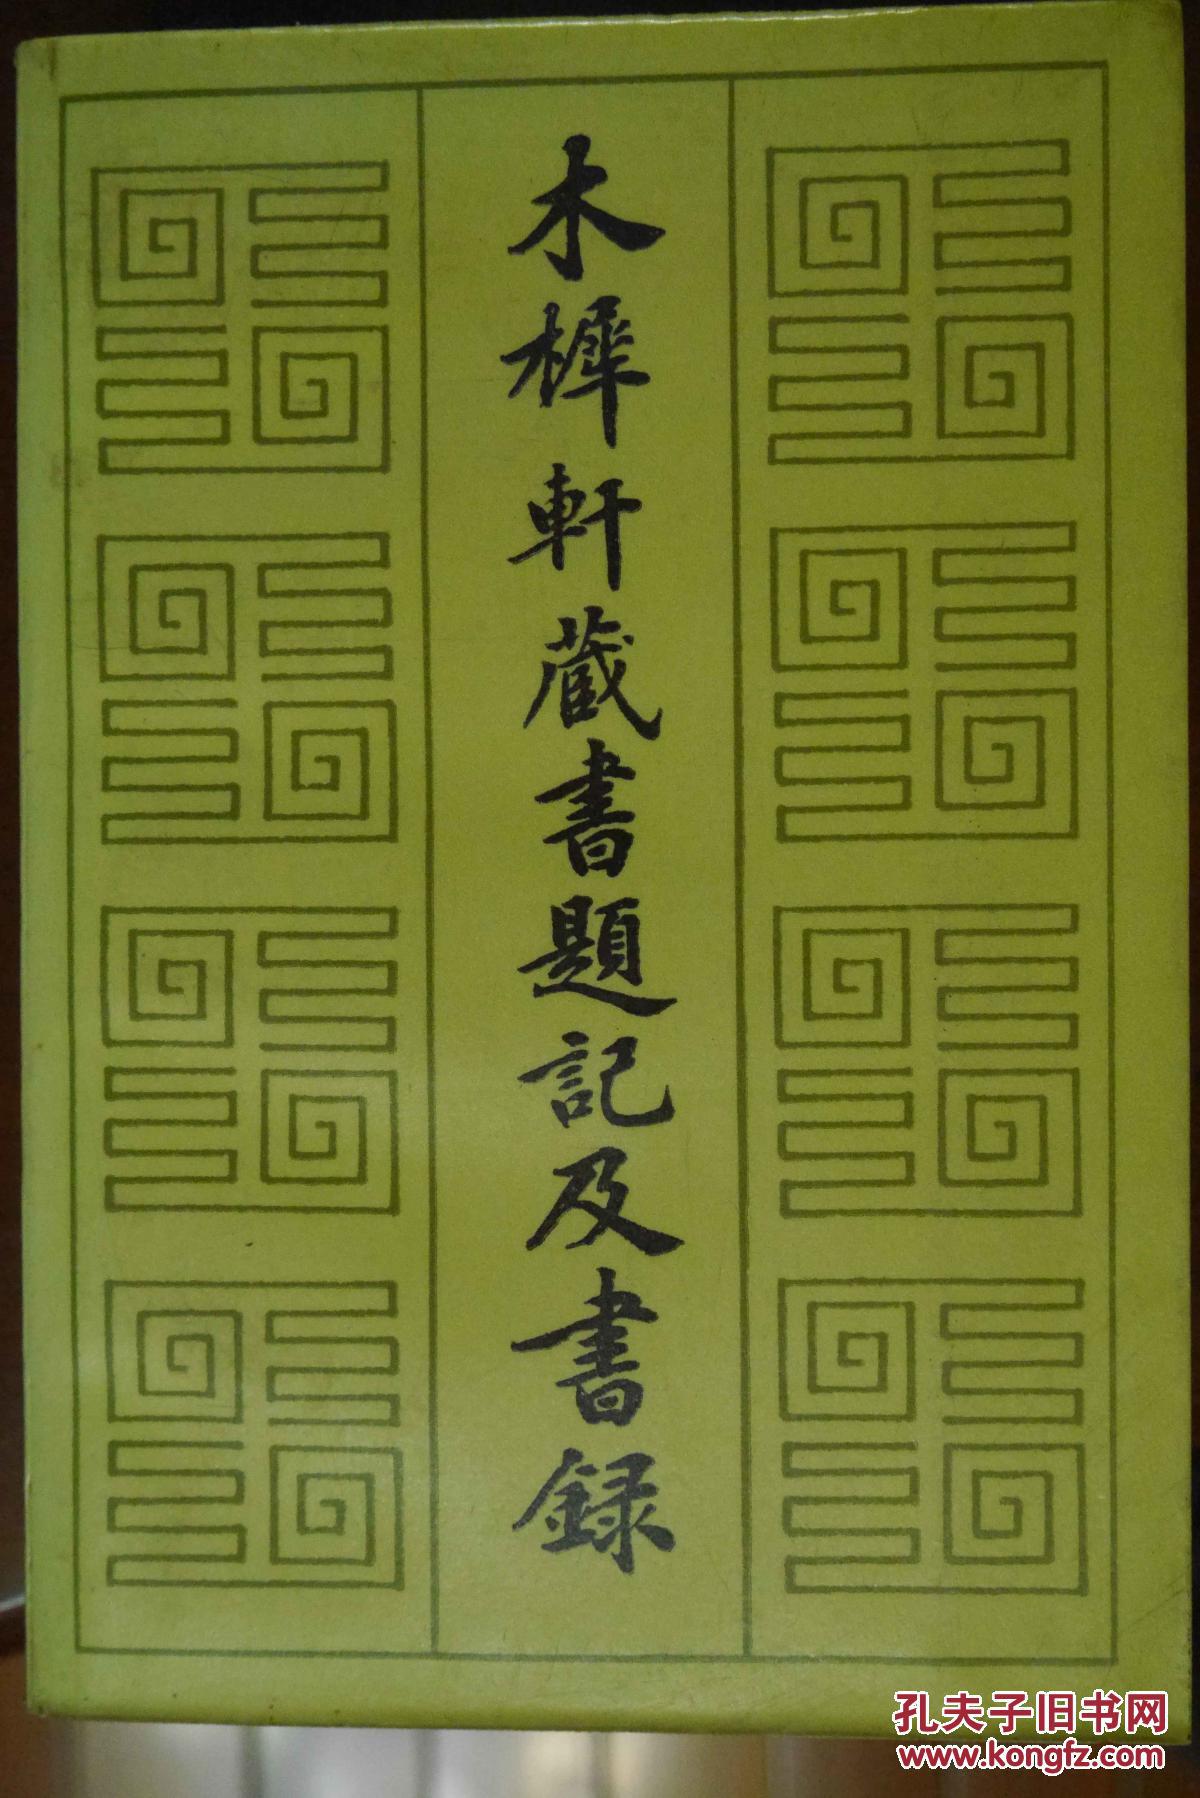 木樨軒藏書題記及書錄
孔夫子旧书网
www.kongfz.com